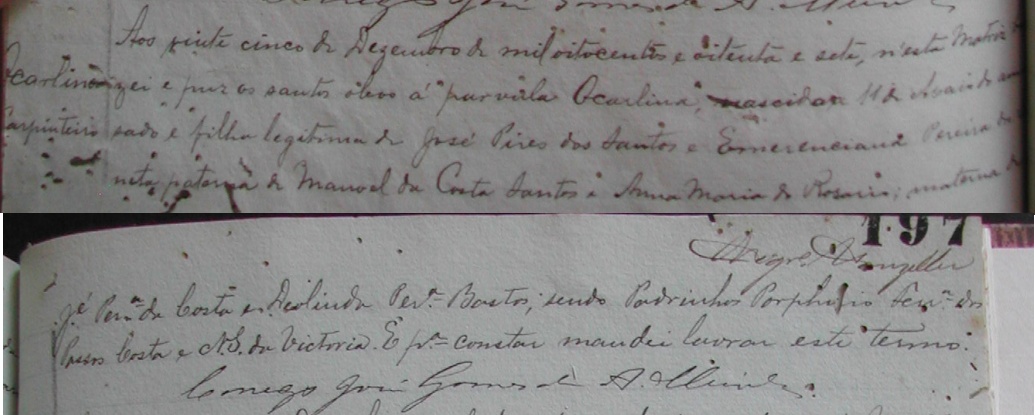 Conego José Gomes de A.
Aos vinte cinco de Dezembro de mil oitocentos e oitenta e sete, n'esta Matriz
Ocarlina zei e puz os santos oleos á parvula Ocarlina, nascida a 11 de
Carpinteiro sado e filha legitima de José Pires dos Santos e Emerenciana Pereira da
neta paterna de Manoel da Costa Santos e Anna Maria do Rosario; materna de
197
Jé Perª da Costa e Deolinda Perª Bastos; sendo Padrinhos Porphirio Ferrª dos
Passos Costa e N.S. da Victoria. E pª constar mandei lavrar este termo.
Conego José Gomes de A.